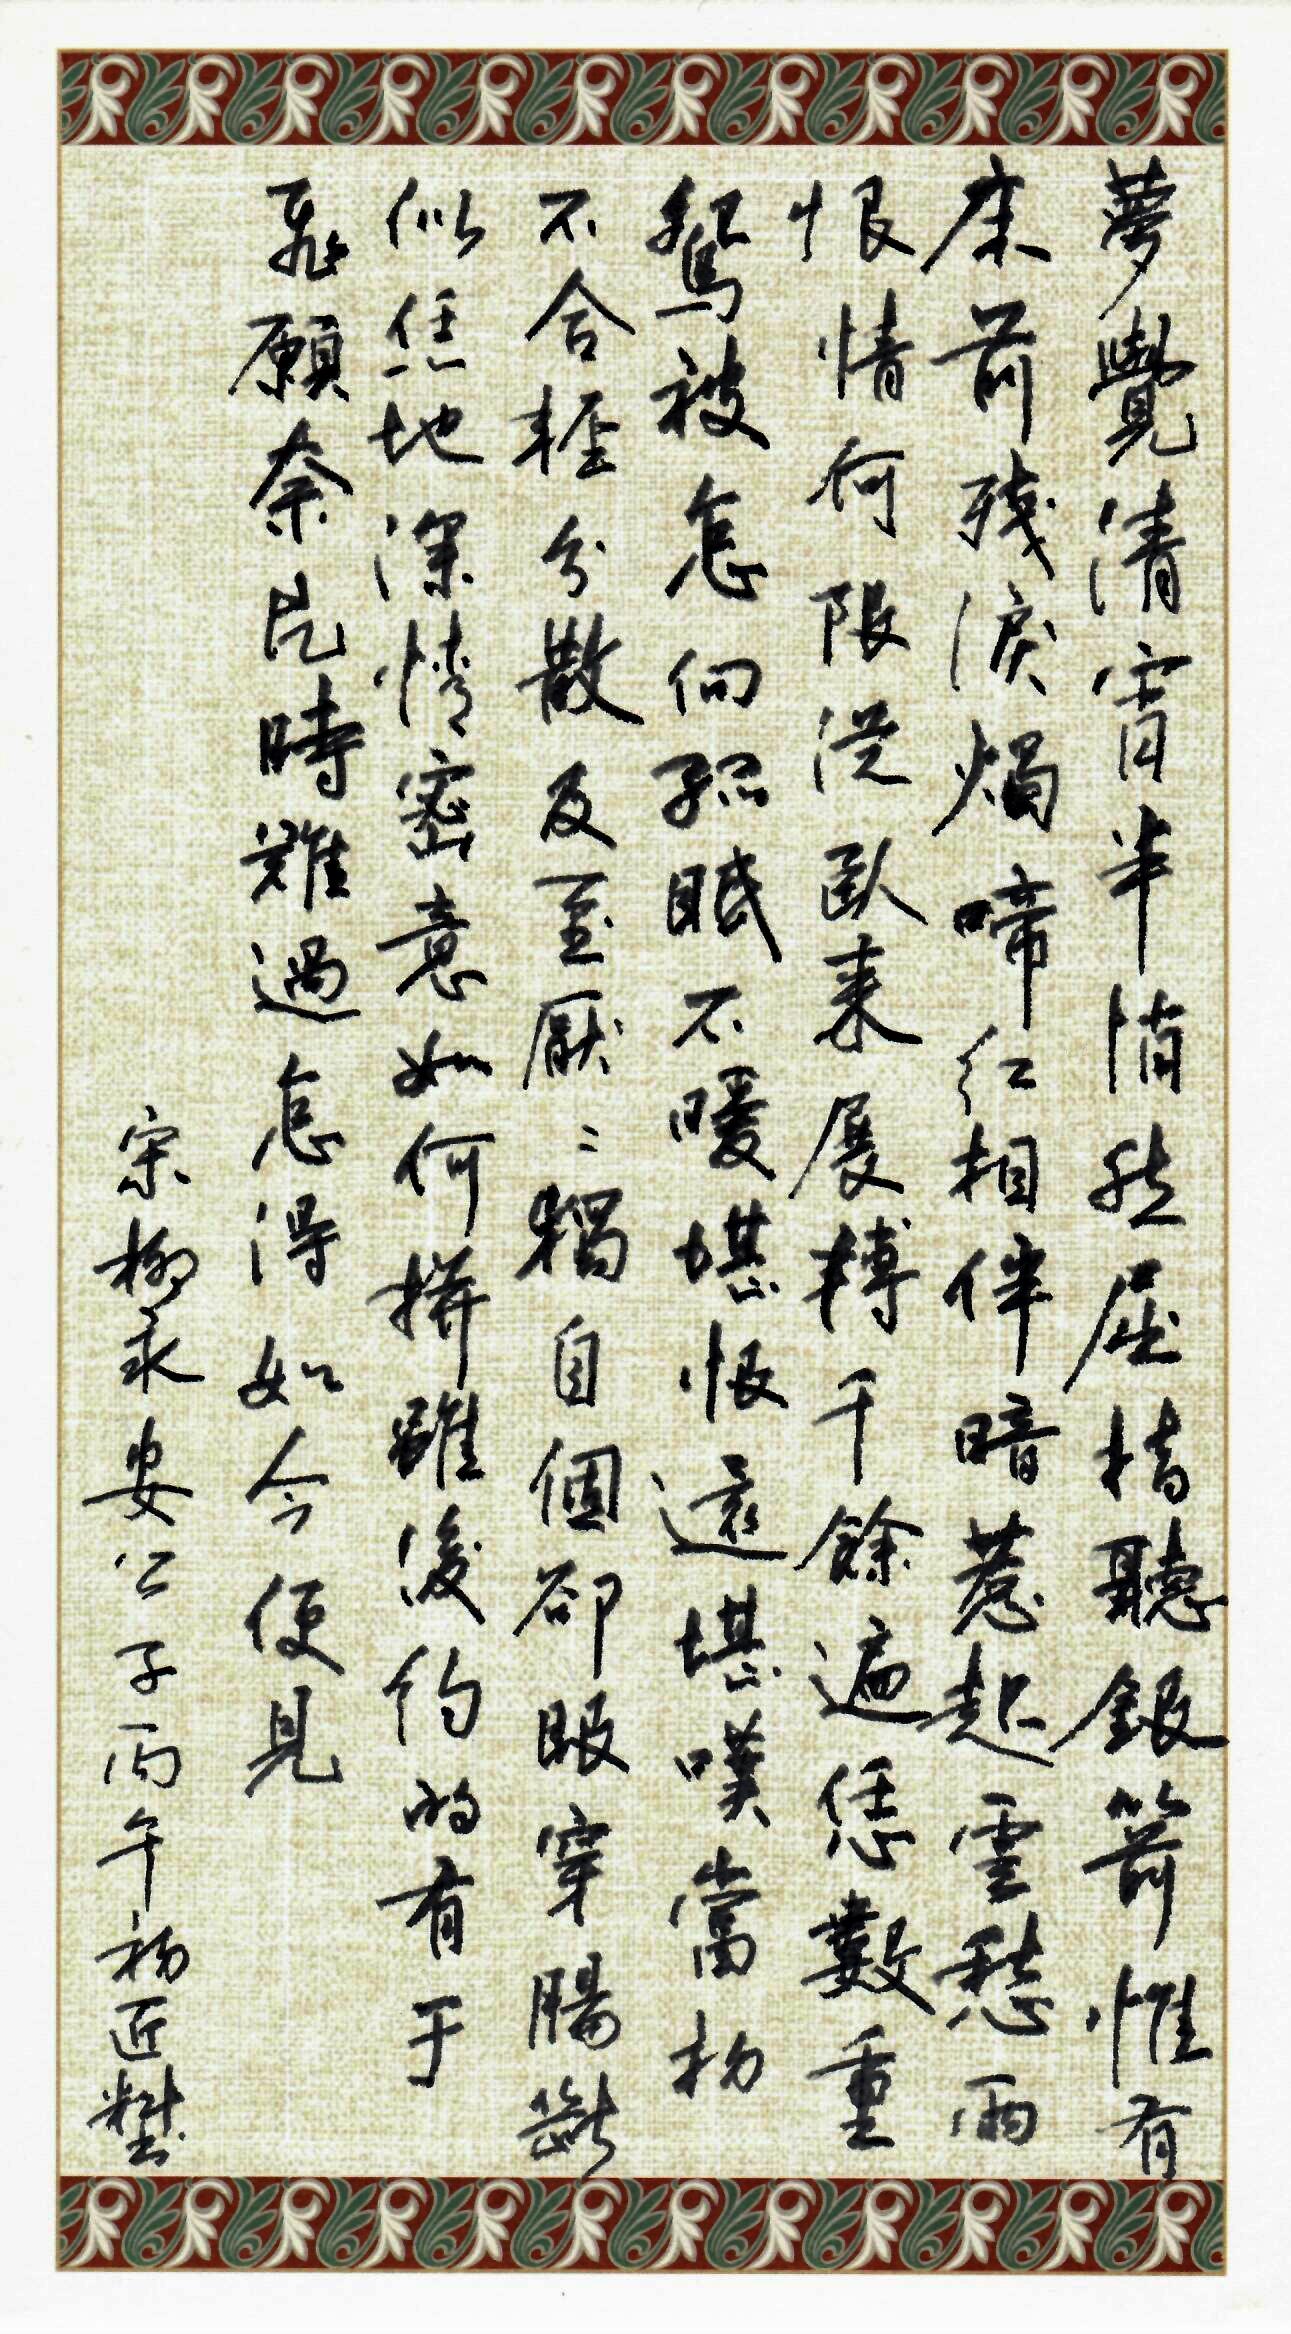 夢覺清宵半悄然屈指聽銀箭惟有
床前殘淚燭啼紅相伴暗惹起雲愁雨
恨情何限從臥來展轉千餘遍恁數重
鴛被怎向孤眠不暖堪恨還堪嘆當初
不合輕分散及至厭〻獨自個卻眼穿腸斷
似恁地深情密意如何拚雖後約的有于
飛願奈片時難過怎得如今便見
宋柳永安公子丙午初匠